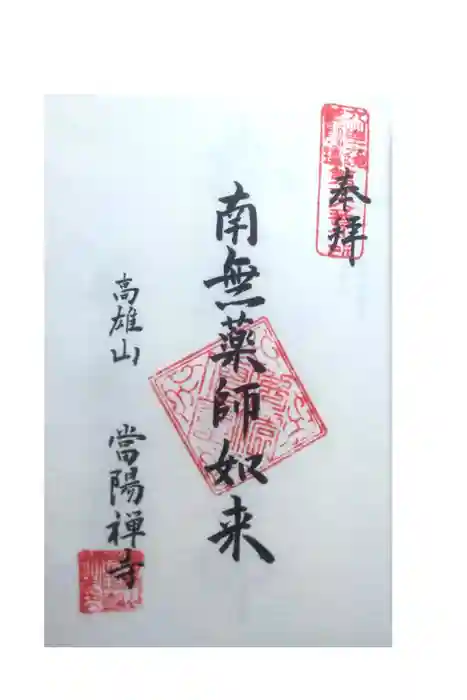 奉拝
南無薬師如来
高雄山 當陽禅寺